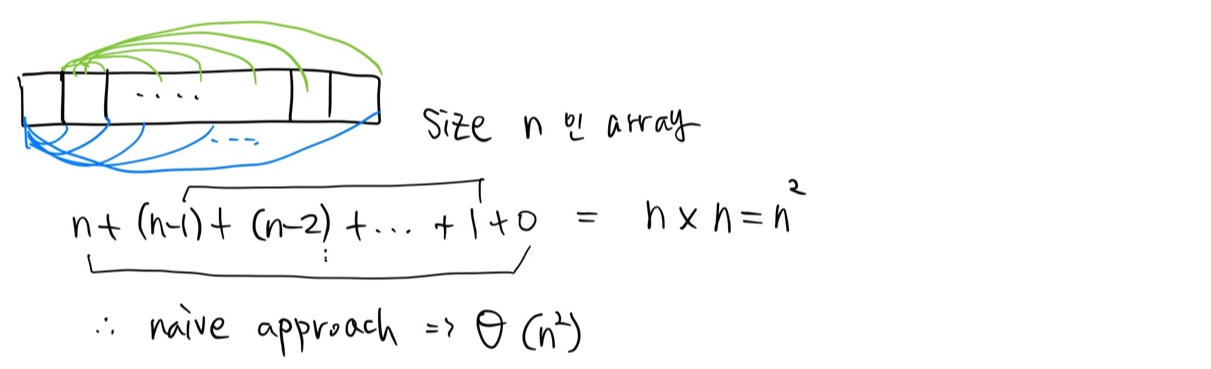 ....
---
Size n 인 array
n + (n-1) + (n-2) + ... + 1 + 0 = n × n = n²
⋮
∴ naive approach => θ(n²)